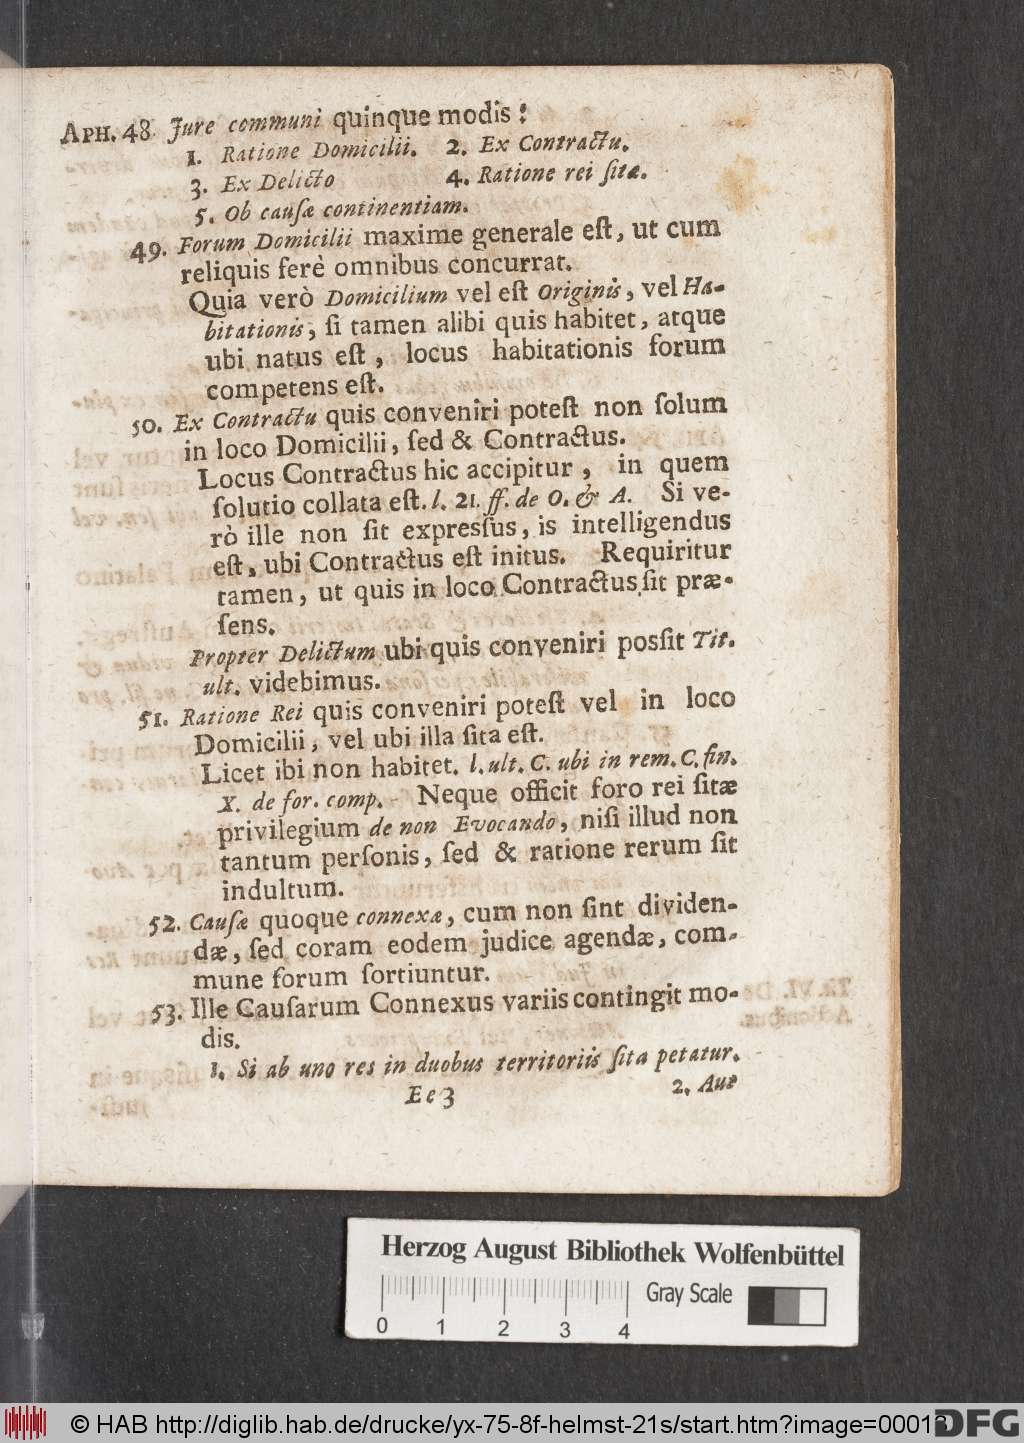 APH. 48. Jure communi quinque modis:
1. Ratione Domicilii. 2. Ex Contractu.
3. Ex Delicto 4. Ratione rei ſitæ.
5. Ob cauſæ continentiam.
49. Forum Domicilii maxime generale eſt, ut cum
reliquis ferè omnibus concurrat.
Quia verò Domicilium vel eſt Originis, vel Ha-
bitationis, ſi tamen alibi quis habitet, atque
ubi natus eſt, locus habitationis forum
competens eſt.
50. Ex Contractu quis conveniri poteſt non ſolum
in loco Domicilii, ſed & Contractus.
Locus Contractus hic accipitur, in quem
ſolutio collata eſt. l. 21. ff. de O. & A. Si ve-
rò ille non ſit expreſſus, is intelligendus
eſt, ubi Contractus eſt initus. Requiritur
tamen, ut quis in loco Contractus ſit præ-
ſens.
Propter Delictum ubi quis conveniri poſſit Tit.
ult. videbimus.
51. Ratione Rei quis conveniri poteſt vel in loco
Domicilii, vel ubi illa ſita eſt.
Licet ibi non habitet. l. ult. C. ubi in rem. C. fin.
X. de for. comp. Neque officit foro rei ſitæ
privilegium de non Evocando, niſi illud non
tantum perſonis, ſed & ratione rerum ſit
indultum.
52. Cauſæ quoque connexæ, cum non ſint dividen-
dæ, ſed coram eodem judice agendæ, com-
mune forum ſortiuntur.
53. Ille Cauſarum Connexus variis contingit mo-
dis.
1. Si ab uno res in duobus territoriis ſita petatur.
Ee 3 2. Aut
Herzog August Bibliothek Wolfenbüttel
Gray Scale
0 1 2 3 4
© HAB http://diglib.hab.de/drucke/yx-75-8f-helmst-21s/start.htm?image=00013
DFG